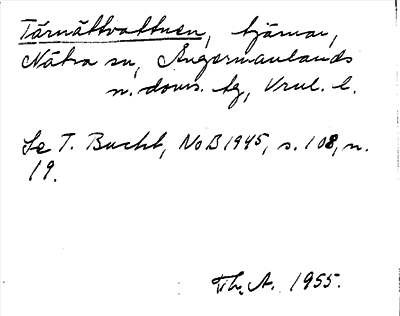 Tärnättvattnen, tjärnar,
Nätra sn, Ångermanlands
n. doms. tg, Vrnl. l.
Se T. Bucht, NoB 1945, s. 108, n.
19.
Th. A. 1955.